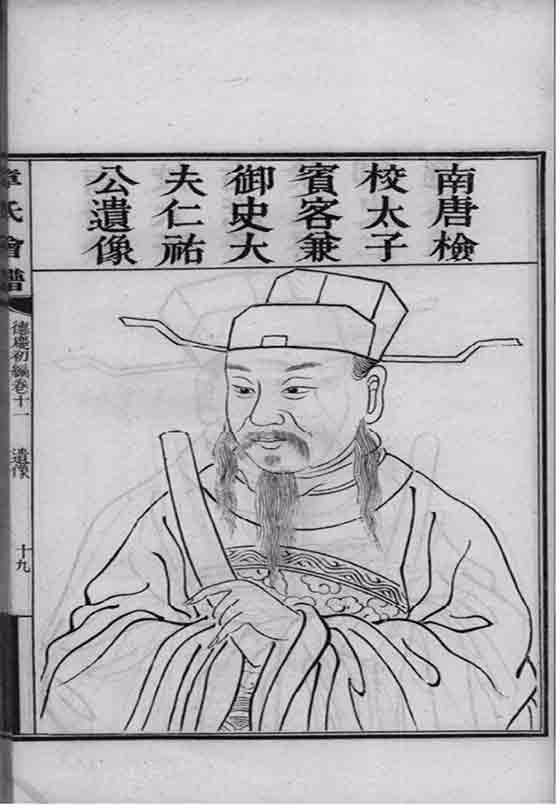 南唐檢
校太子
賓客兼
御史大
夫仁祐
公遺像
章氏會譜
德慶初編卷十一
遺像
十九